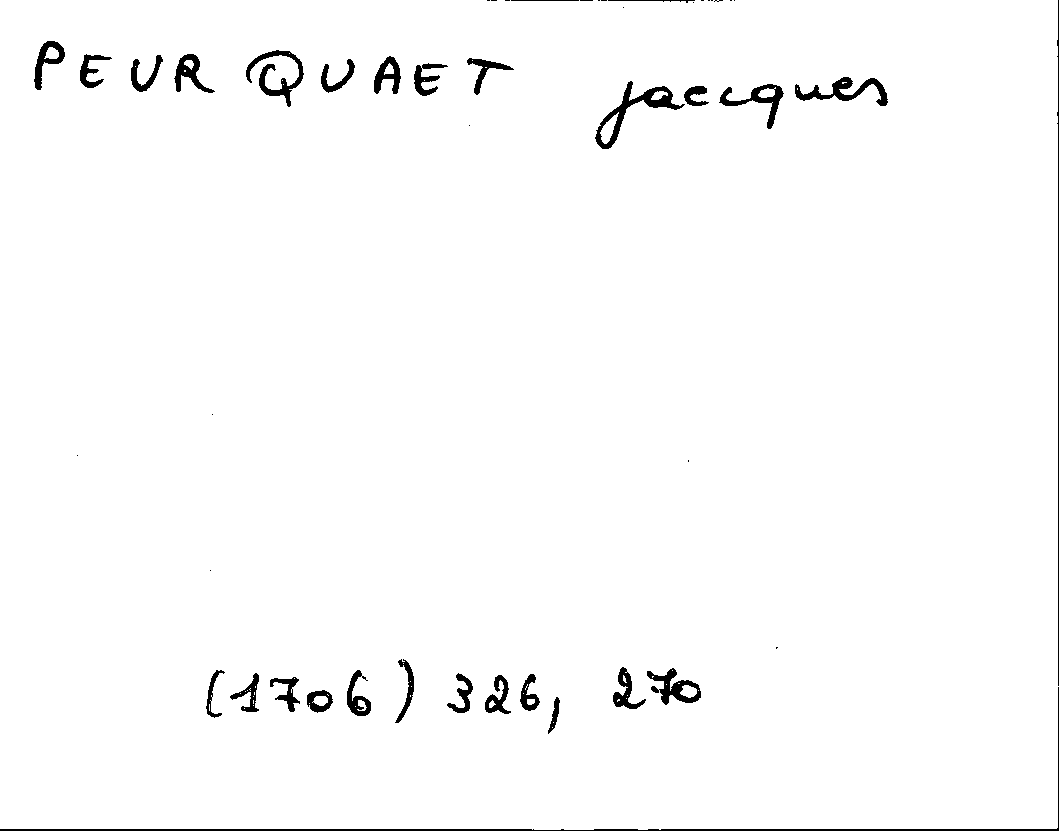 PEURQUAET jaccques
(1706) 326, 270